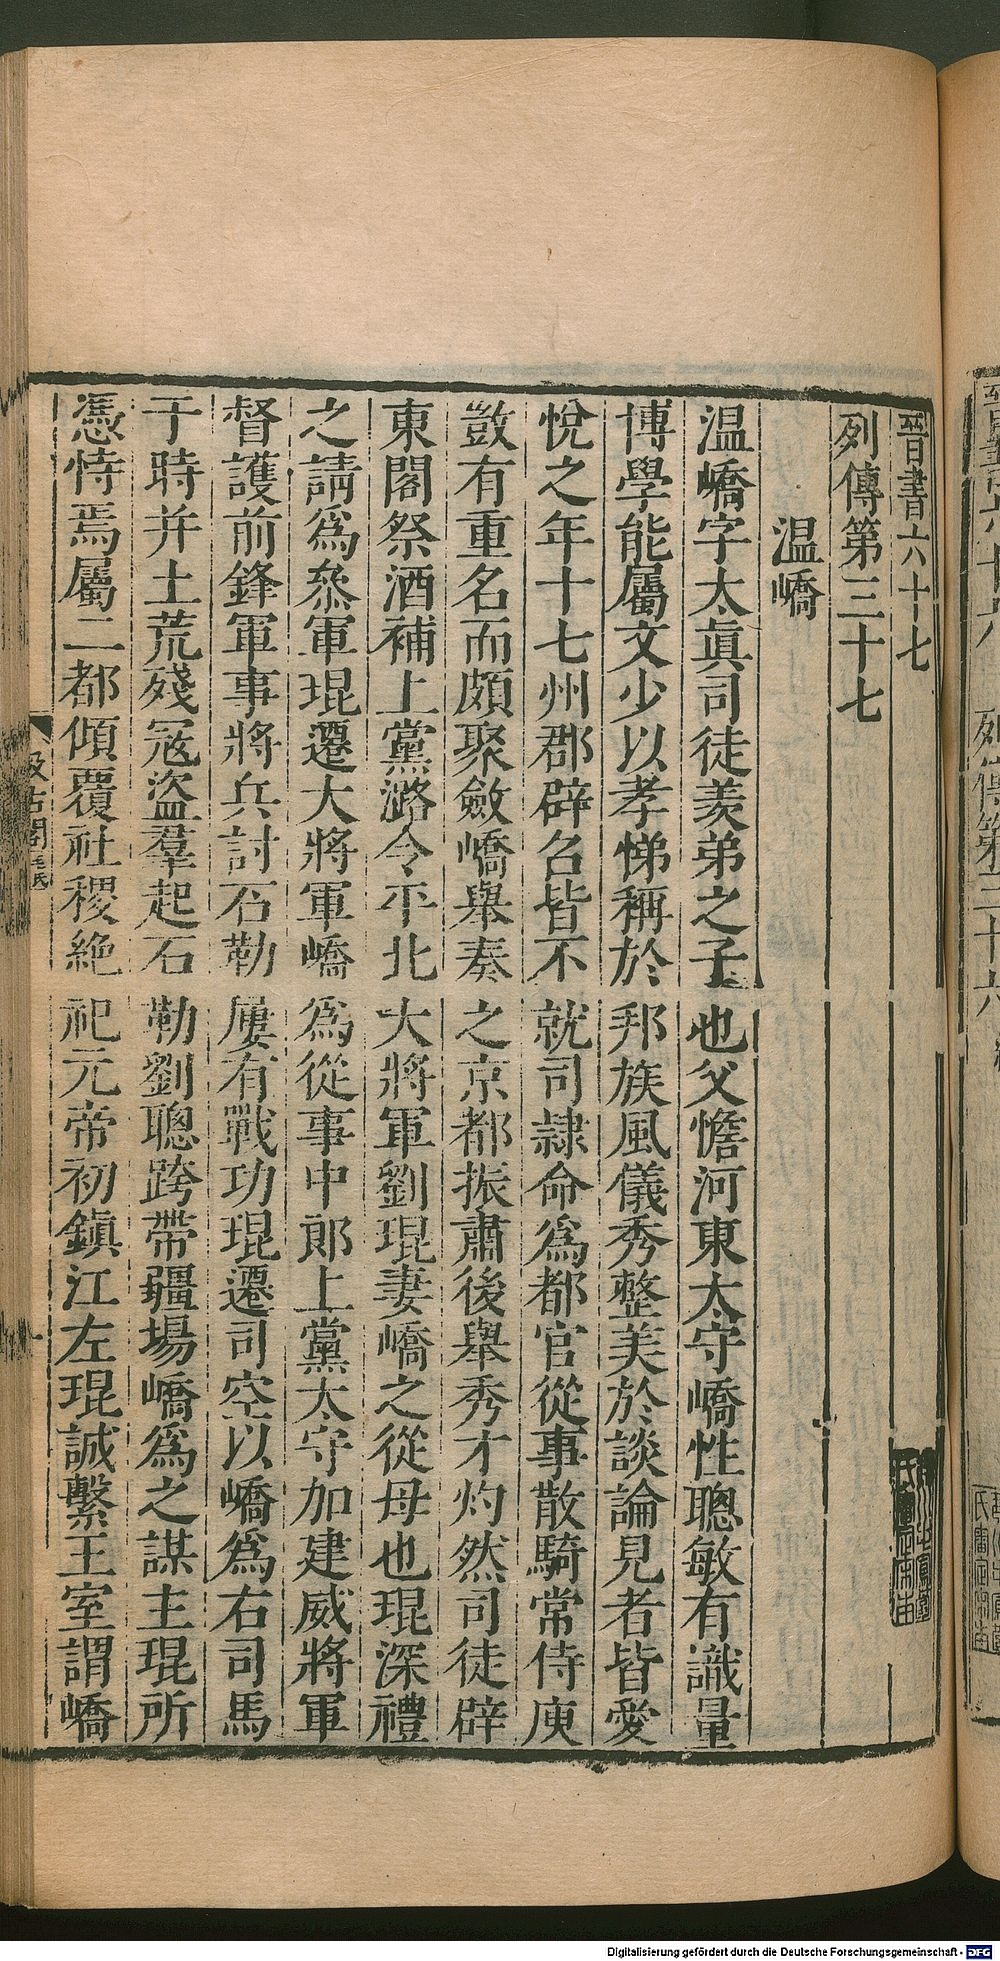 晉書六十七
列傳第三十七
溫嶠
溫嶠字太眞司徒羨弟之子也父憺河東太守嶠性聰敏有識量
博學能屬文少以孝悌稱於邦族風儀秀整美於談論見者皆愛
悅之年十七州郡辟召皆不就司隸命爲都官從事散騎常侍庾
敳有重名而頗聚斂嶠舉奏之京都振肅後舉秀才灼然司徒辟
東閣祭酒補上黨潞令平北大將軍劉琨妻嶠之從母也琨深禮
之請爲叅軍琨遷大將軍嶠爲從事中郎上黨太守加建威將軍
督護前鋒軍事將兵討石勒屢有戰功琨遷司空以嶠爲右司馬
于時并土荒殘冦盜羣起石勒劉聰跨帶疆場嶠爲之謀主琨所
憑恃焉屬二都傾覆社稷絶祀元帝初鎭江左琨誠繫王室謂嶠
汲古閣
毛氏
列傳第三十六
Digitalisierung gefördert durch die Deutsche Forschungsgemeinschaft - DFG